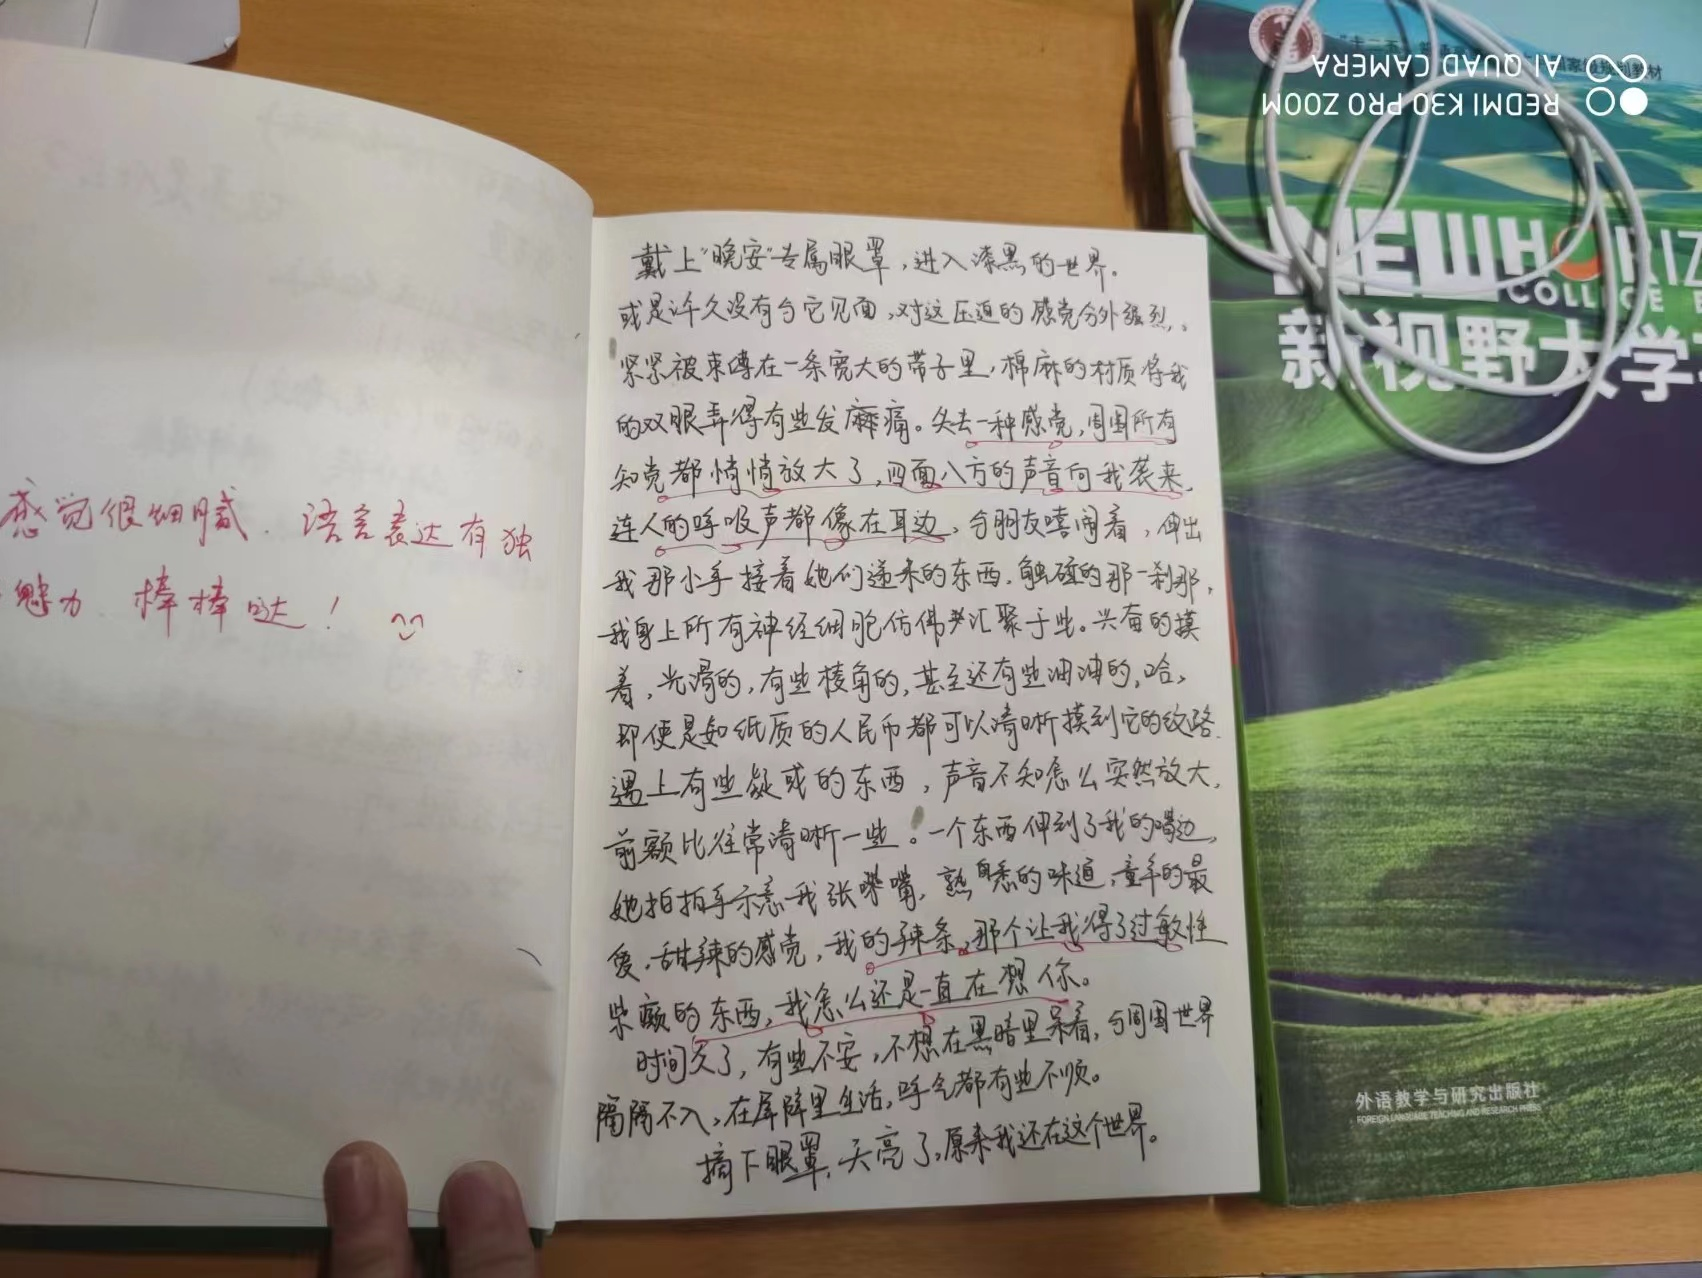 感觉很细腻.语言表达有独
魅力.棒棒哒!
戴上“晚安”专属眼罩,进入漆黑的世界。
或是许久没有与它见面,对这压迫的感觉分外强烈,
紧紧被束缚在一条宽大的带子里,棉麻的材质将我
的双眼弄得有些发痒痛。失去一种感觉,周围所有
知觉都悄悄放大了,四面八方的声音向我袭来,
连人的呼吸声都像在耳边,与朋友嘻闹着,伸出
我那小手接着她们递来的东西.触碰的那一刹那,
我身上所有神经细胞仿佛汇聚于此。兴奋的摸
着,光滑的,有些棱角的,甚至还有些油油的,哈,
即使是如纸质的人民币都可以清晰摸到它的纹路.
遇上有些疑惑的东西,声音不知怎么突然放大,
前额比往常清晰一些。一个东西伸到了我的嘴边,
她拍拍手示意我张嘴,熟悉的味道,童年的最
爱.甜辣的感觉,我的辣条,那个让我得了过敏性
紫癜的东西,我怎么还是一直在想你。
时间久了,有些不安,不想在黑暗里呆着,与周围世界
隔隔不入,在屏障里生活,呼气都有些不顺。
摘下眼罩,天亮了,原来我还在这个世界。
REDMI K30 PRO ZOOM
AI QUAD CAMERA
NEW HORIZ
COLLEGE E
新视野大学
外语教学与研究出版社
FOREIGN LANGUAGE TEACHING AND RESEARCH PRESS